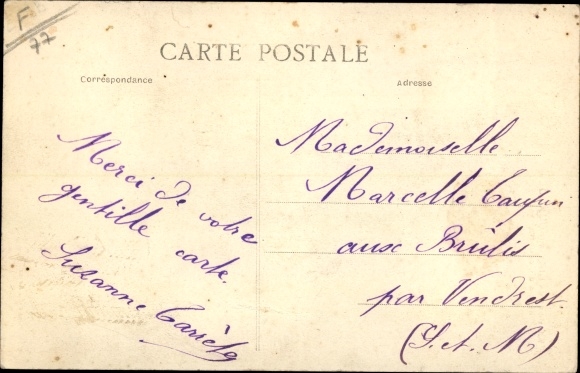 F
77
CARTE POSTALE
Correspondance
Adresse
Merci de votre
gentille carte.
Suzanne
Mademoiselle
Marcelle
aux Brûlis
par Vendrest.
(S. et. M)